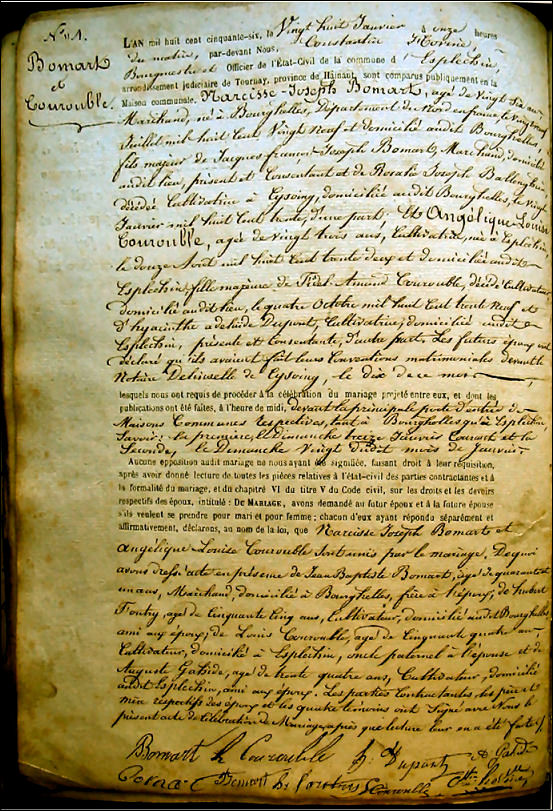 N.° 1.
Bomart
et
Couroublé.
L'AN mil huit cent cinquante-six, le Vingt huit Janvier à onze heures
du matin, par-devant Nous, Constantin
Bourgmestre et Officier de l'État-Civil de la commune d'Esplechin,
arrondissement judiciaire de Tournay, province de Hainaut, sont comparus publiquement en la
Maison communale, Narcisse-Joseph Bomart, agé de Vingt Six ans
Marchand, né à Bourghelles, Département du Nord en france, le Vingt neuf
Juillet mil huit Cent Vingt Neuf et domicilié audit Bourghelles,
fils majeur de Jacques françois Joseph Bomart, Marchand, domicilié
audit lieu, présent et Consentant et de Rosalie Joseph
décédée Cultivatrice à Cysoing, domiciliée audit Bourghelles, le Vingt
Janvier mil huit Cent trente, d'une part; Et Angélique Louise
Couroublé, agée de Vingt trois ans, Cultivatrice, née à Esplechin,
le douze Aout mil huit Cent trente deux et domiciliée audit
Esplechin, fille majeure de Fidel-Amand Couroublé, décédé Cultivateur
domicilié audit lieu, le quatre Octobre mil huit Cent trente Neuf et
D'hyacinthe adelaïde Dupont, Cultivatrice, domiciliée audit
Esplechin, présente et Consentante, d'autre part. Les futurs époux ont
déclaré qu'ils avaient fait leurs Conventions matrimoniales devant le
Notaire Delinselle de Cysoing, le dix de ce mois
lesquels nous ont requis de procéder à la célébration du mariage projeté entre eux, et dont les
publications ont été faites, à l'heure de midi, devant la principale porte d'entrée de
Maisons Communes respectives, tant à Bourghelles qu'à Esplechin,
Savoir: la première, le Dimanche treize Janvier Courant et la
Seconde, le Dimanche Vingt dudit mois de Janvier.
Aucune opposition audit mariage ne nous ayant été signifiée, faisant droit à leur réquisition,
après avoir donné lecture de toutes les pièces relatives à l'état-civil des parties contractantes et à
la formalité du mariage, et du chapitre VI du titre V du Code civil, sur les droits et les devoirs
respectifs des époux, intitulé : DU MARIAGE, avons demandé au futur époux et à la future épouse
s'ils veulent se prendre pour mari et pour femme ; chacun d'eux ayant répondu séparément et
affirmativement, déclarons, au nom de la loi, que Narcisse Joseph Bomart et
Angélique-Louise Couroublé Sont unis par le mariage. De quoi
avons dressé acte en présence de Jean Baptiste Bomart, agé de quarante et
un ans, Marchand, domicilié à Bourghelles, frère à l'époux; de hubert
agé de Cinquante Cinq ans, Cultivateur, domicilié audit Bourghelles
ami aux époux; de Louis Couroublé, agé de Cinquante quatre ans,
Cultivateur, domicilié à Esplechin, oncle paternel à l'épouse et de
Auguste agé de trente quatre ans, Cultivateur, domicilié
audit Esplechin, ami aux époux. Les parties Contractantes, les père et
mère respectifs des époux et les quatre témoins ont Signé avec Nous le
présent acte de Célébration de Mariage, après que lecture leur en a été faite.
Bomart Couroublé Dupont
Bomart Couroublé